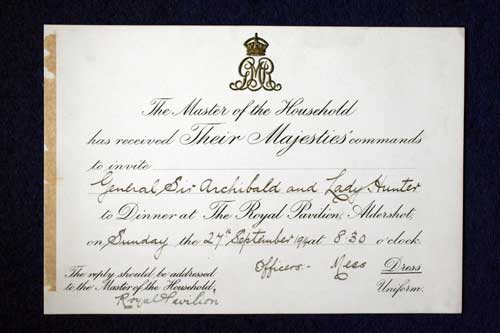 GMR
The Master of the Household
has received Their Majesties' commands
to invite
General Sir Archibald and Lady Hunter
to Dinner at The Royal Pavilion, Aldershot,
on Sunday the 27th September at 8 30 o'clock.
The reply should be addressed Officers - Mess Dress
to the Master of the Household, Uniform.
Royal Pavilion